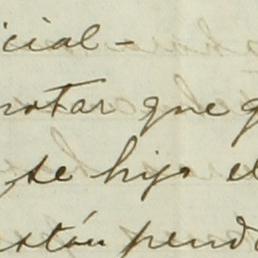 icial-
notar que g
se hijo el
stón pend